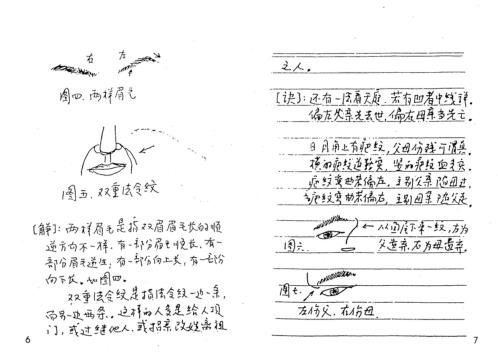 右 左
图四、两样眉毛
图五、双重法令纹
[解]：两样眉毛是指双眉眉毛长的顺
逆方向不一样，有一部分眉毛顺长，有一
部分眉毛逆生，有一部分向上长，有一部份
向下长。如图四。
双重法令纹是指法令纹一边一条，
另一边两条。这样的人多是给人顶
门，或过继他人，或招亲改姓弃祖
6
之人。
[诀]：还有一法看天庭，若有凹者中线详。
偏左父亲先去世，偏右母亲当先亡。
日月角上有疤纹，父母伤残可谓真。
横的疤纹
疤纹弯曲若偏左，主别父亲
疤纹弯曲若偏右，主别母亲
图六、
从印底下来一纹，左为
父遗弃，右为母遗弃。
图七、
左伤父，右伤母。
7